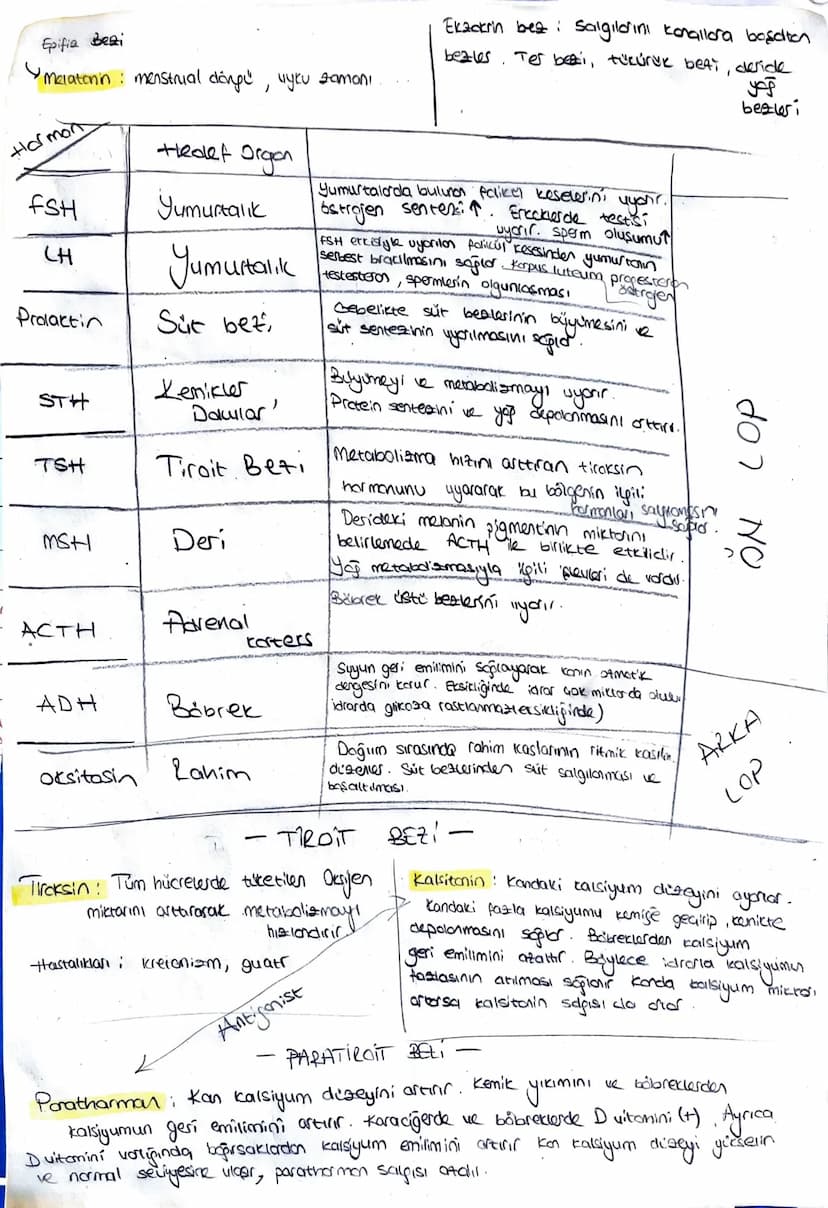 Epifiz Bezi
Melatonin : menstrual döngü , uyku zamanı
Ekzokrin bez : Salgılarını kanallara boşaltan
bezler . Ter bezi, tükürük bezi , deride
yağ
bezleri
Hormon
Hedef Organ
FSH
Yumurtalık
Yumurtalarda bulunan folikül keselerini uyarır.
östrojen sentezi ↑ . Erkeklerde testisi
uyarır. sperm oluşumu ↑
LH
Yumurtalık
FSH etkisiyle uyarılan folikül kesesinden yumurtanın
serbest bırakılmasını sağlar. Korpus luteum progesteron
östrojen
testesteron , spermlerin olgunlaşması
Prolaktin
Süt bezi
Gebelikte süt bezlerinin büyümesini ve
süt sentezinin uyarılmasını sağlar.
STH
Kemikler
Dokular
Büyümeyi ve metabolizmayı uyarır.
Protein sentezini ve yağ depolanmasını arttırır.
TSH
Tiroit Bezi
Metabolizma hızını arttıran tiroksin
hormonunu uyararak bu bölgenin ilgili
hormonları salgılamasını
sağlar.
MSH
Deri
Derideki melanin pigmentinin miktarını
belirlemede ACTH ile birlikte etkilidir.
Yağ metabolizmasıyla ilgili işlevleri de vardır.
ACTH
Adrenal
korteks
Böbrek üstü bezlerini uyarır.
ÖN LOP
ADH
Böbrek
Suyun geri emilimini sağlayarak kanın ozmotik
dengesini korur. Eksikliğinde idrar çok miktarda oluşur
idrarda glikoza rastlanmaz(eksikliğinde)
Oksitosin
Rahim
Doğum sırasında rahim kaslarının ritmik kasılm.
düzenler. Süt bezlerinden süt salgılanması ve
boşaltılması.
ARKA
LOP
— TİROİT BEZİ —
Tiroksin : Tüm hücrelerde tüketilen Oksijen
miktarını arttırarak metabolizmayı
hızlandırır
Hastalıkları : kretenizm, guatr
Kalsitonin : Kandaki kalsiyum düzeyini ayarlar.
Kandaki fazla kalsiyumu kemiğe geçirip, kemikte
depolanmasını sağlar. Böbreklerden kalsiyum
geri emilimini azaltır. Böylece idrarla kalsiyumun
fazlasının atılması sağlanır kanda kalsiyum miktarı
artarsa kalsitonin salgısı da artar.
Antigonist
— PARATİROİT BEZİ —
Parathormon : Kan kalsiyum düzeyini artırır. Kemik yıkımını ve böbreklerden
kalsiyumun geri emilimini artırır. Karaciğerde ve böbreklerde D vitamini (+). Ayrıca
D vitamini varlığında bağırsaklardan kalsiyum emilimini artırır kan kalsiyum düzeyi yükselir
ve normal seviyesine ulaşır, parathormon salgısı azalır.